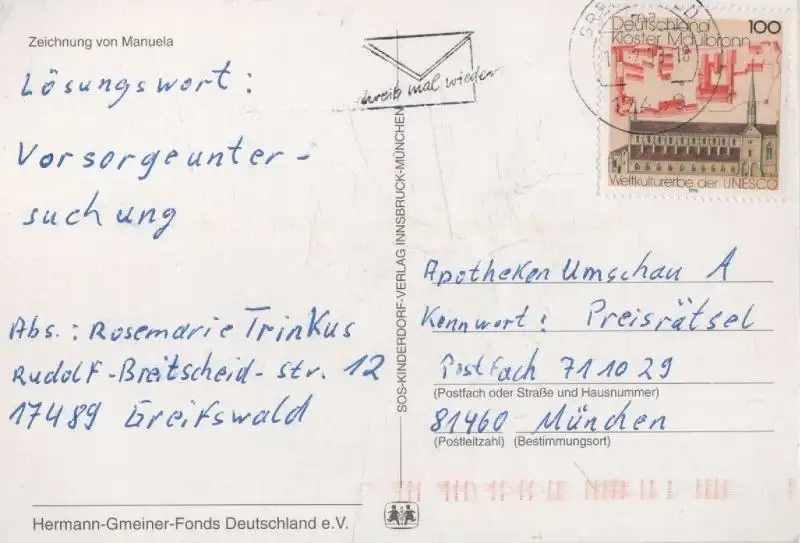 Zeichnung von Manuela
Lösungswort:
Vorsorgeunter-
suchung
Abs.: Rosemarie Trinkus
Rudolf-Breitscheid-str. 12
17489 Greifswald
Hermann-Gmeiner-Fonds Deutschland e.V.
SOS-KINDERDORF-VERLAG INNSBRUCK-MÜNCHEN
schreib mal wieder
Deutschland 100
Kloster Maulbronn
Weltkulturerbe der UNESCO
1998
Apotheken Umschau A
Kennwort: Preisrätsel
Postfach 711029
(Postfach oder Straße und Hausnummer)
81460 München
(Postleitzahl) (Bestimmungsort)